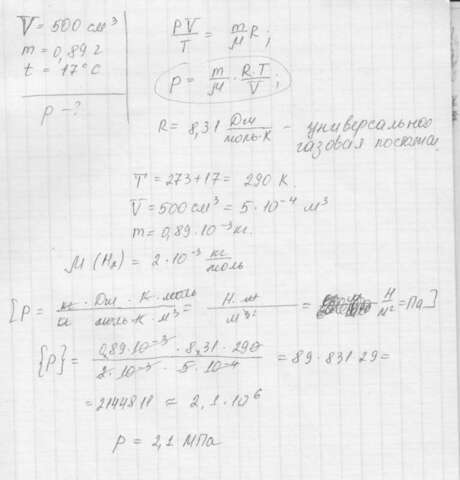 V = 500 см³
m = 0,89 г
t = 17°C
P - ?
PV/T = m/μ R;
P = m/μ · R·T/V;
R = 8,31 Дж/моль·К - универсальная
газовая
T = 273+17 = 290 К.
V = 500 см³ = 5·10⁻⁴ м³
m = 0,89·10⁻³ кг.
μ (H₂) = 2·10⁻³ кг/моль
= Н·м/м³ = Н/м² = Па]
{P} = 0,89·10⁻³ · 8,31 · 290 / 2·10⁻³ · 5·10⁻⁴ = 89·831·29 =
= 2144811 ≈ 2,1·10⁶
P = 2,1 МПа